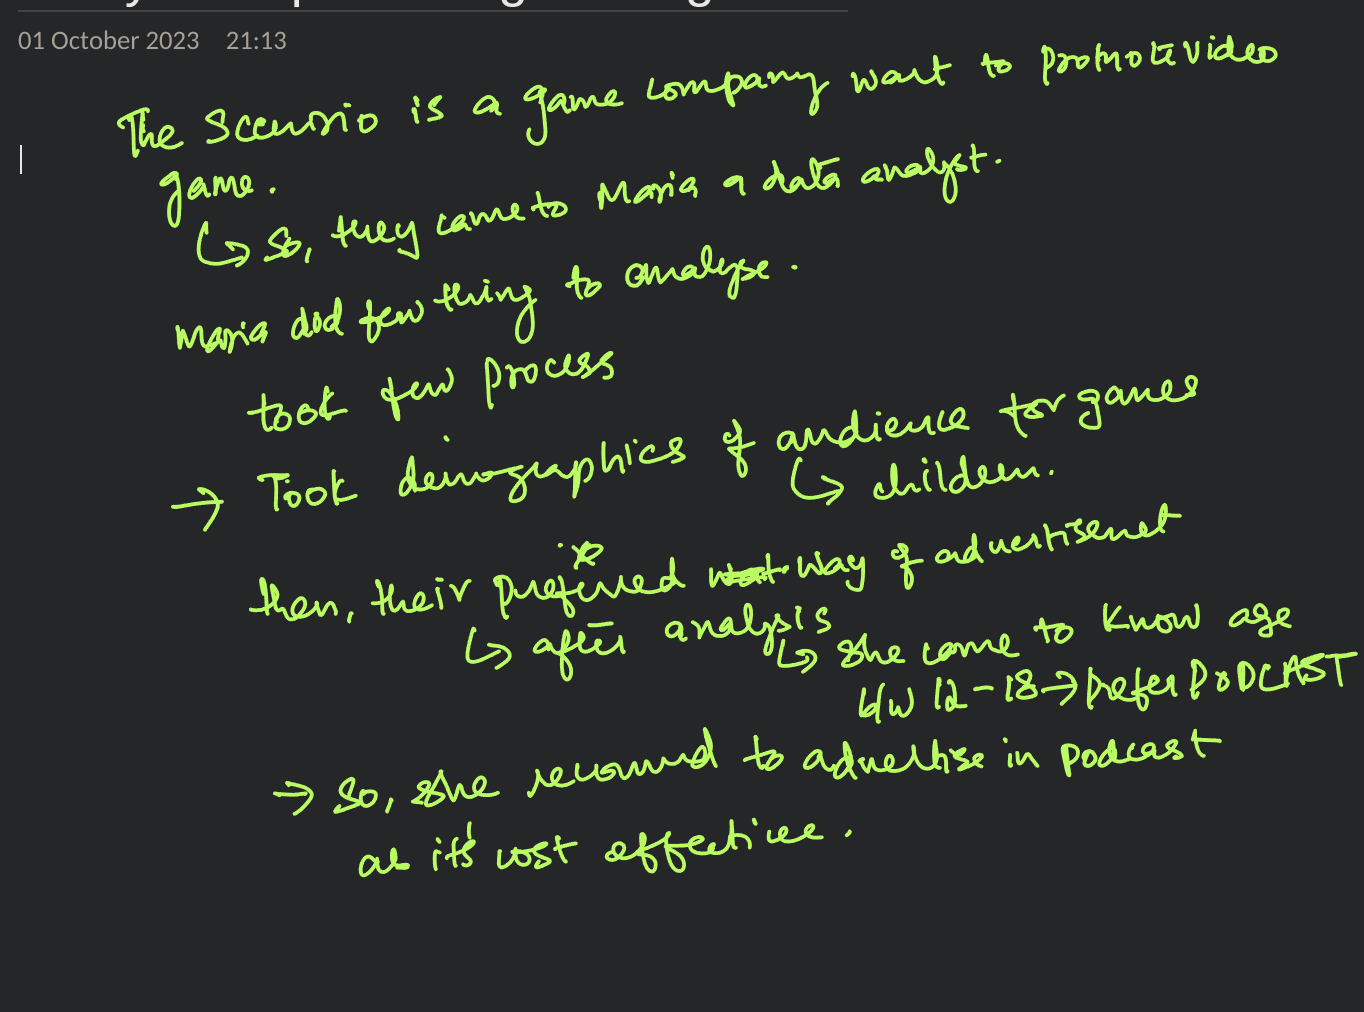 01 October 2023 21:13
The Scenario is a game company want to promote video
game.
↳ So, they came to Maria a data analyst.
Maria did few thing to analyse.
took few process
→ Took demographics of audience for games
↳ children.
then, their preferred way of advertisement
↳ after analysis
↳ she come to know age
b/w 12-18→prefer PODCAST
→ So, she recommend to advertise in podcast
as it's cost effective.